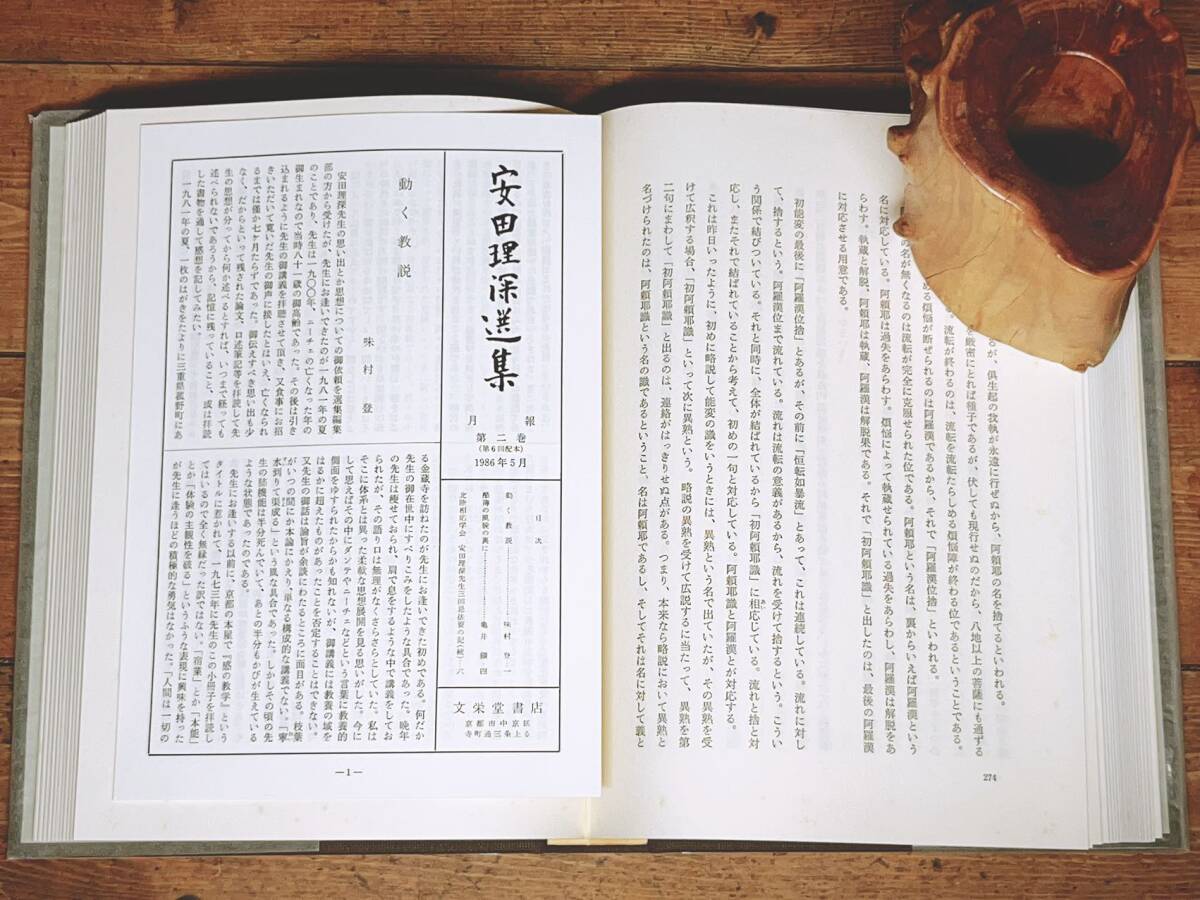 るが、倶生起の我執が永遠に行ぜぬから、阿頼耶の名を捨てるといわれる。
を厳密にとれば種子であるが、伏しても現行せぬのだから、八地以上の菩薩にも通ずる
流転が終わるのは、流転を流転たらしめる煩悩障が終わる位であるということである。
ある煩悩が断ぜられるのは阿羅漢であるから、それで「阿羅漢位捨」といわれる。
の名が無くなるのは流転が完全に克服せられた位である。阿頼耶という名は、裏からいえば阿羅漢という
名に対応している。阿頼耶は過失をあらわす。煩悩によって執蔵せられている過失をあらわし、阿羅漢は解脱をあ
らわす。執蔵と解脱、阿頼耶は執蔵、阿羅漢は解脱果である。それで「初阿頼耶識」と出したのは、最後の阿羅漢
に対応させる用意である。
初能変の最後に「阿羅漢位捨」とあるが、その前に「恒転如暴流」とあって、これは連続している。流れに対し
て、捨するという。阿羅漢位まで流れている。流れは流転の意義があるから、流れを受けて捨するという。こうい
う関係で結びついている。それと同時に、全体が結ばれているから「初阿頼耶識」に相応している。流れと捨と対
応し、またそれで結ばれていることから考えて、初めの一句と対応している。阿頼耶識と阿羅漢とが対応する。
これは昨日いったように、初めに略説して能変の識をいうときには、異熟という名で出ていたが、その異熟を受
けて広釈する場合、「初阿頼耶識」といって次に異熟という。略説の異熟を受けて広説するに当たって、異熟を第
二句にまわして「初阿頼耶識」と出るのは、連絡がはっきりせぬ点がある。つまり、本来なら略説において異熟と
名づけられたのは、阿頼耶識という名の識であるということ、名は阿頼耶であるし、そしてそれは名に対して義と
274
安田理深選集
月報
第二巻
(第6回配本)
1986年5月
目次
動く教説……味村登…一
酷薄の風貌の裏に……亀井鑛…四
北陸相応学会 安田理深先生三回忌依要の記(続)…六
文栄堂書店
京都市中京区
寺町通三条上る
動く教説
味村登
安田理深先生の思い出とか思想についての御依頼を選集編集
部の方から受けたが、先生にお逢いできたのが一九八一年の夏
のことであり、先生は一九〇〇年、ニーチェの亡くなった年の
御生まれなので当時八十一歳の御高齢であった。その後は引き
込まれるように先生の御講義を拝聴させて頂き、又食事にお招
きいただいて寛いだ先生の御声に接したとはいえ、亡くなられ
るまでは僅か七ケ月たらずであった。御伝えすべき思い出も少
なく、だからといって残された論文、口述筆記等を拝読して先
生の思想が分ってから何か述べるとすれば、いつまで経っても
述べられないであろうから、記憶に残っていること、或は拝読
した書物を通して感想を記してみたい。
一九八一年の夏、一枚のはがきをたよりに三重県菰野町にあ
る金蔵寺を訪ねたのが先生にお逢いできた初めである。何だか
先生の御在世中にすべりこみをしたような具合であった。晩年
の先生は痩せておられ、肩で息をするような中で講義をしてお
られたが、その語り口は無理がなくさらさらとしていた。私は
そこに体系とは異った柔軟な思想展開を見る思いがした。今に
して思えばその中にダンテやニーチェなどという言葉に教養的
側面をゆすられたからかも知れないが、御講義には教養の域を
はるかに超えたものがあったことを否定することはできない。
又先生の御話は論旨が余談にわたるところに面目がある。枝葉
がいつの間にか本論にかえり、単なる構成的な講義でない。「寧
水到りて渠成る」という風な具合であった。しかしその頃の先
生の肺機能は半分死んでいて、あとの半分もかびが生えている
ような状態であったのである。
先生にお逢いする以前に、京都の本屋で『感の教学』という
タイトルに惹かれて、一九七三年に先生のこの小冊子を拝読し
てはいるので全く無縁だった訳ではない。「宿業」とか「本能」
とか「体験の主観性を破る」というふうな表現に興味を持った
が先生に逢うほどの積極的な勇気はなかった。「人間は一切の
—1—